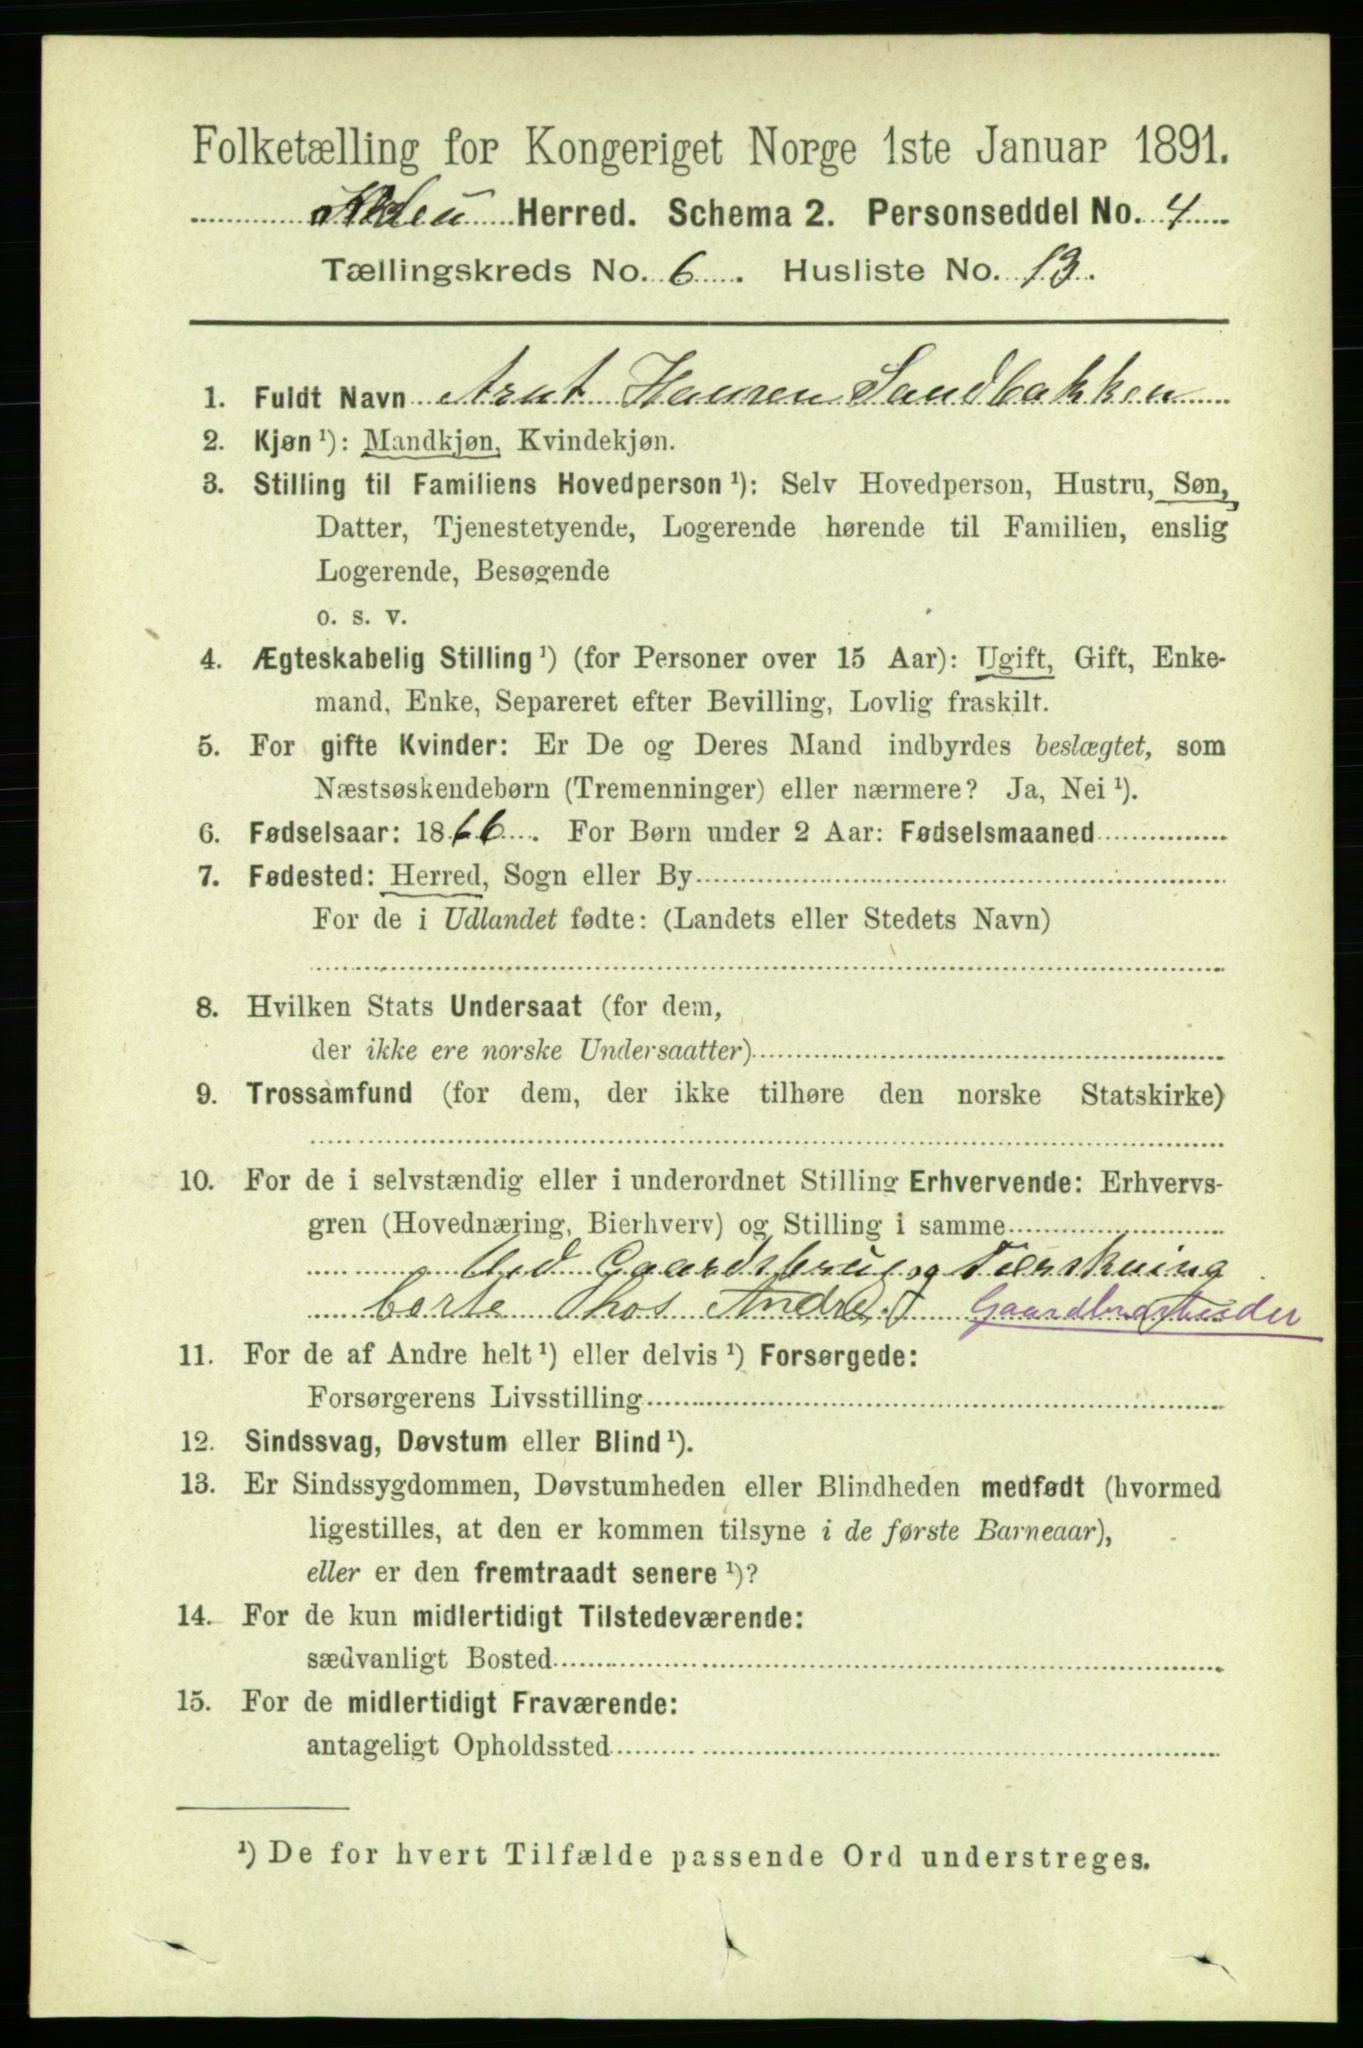 Folketælling for Kongeriget Norge 1ste Januar 1891.
Herred. Schema 2. Personseddel No. 4
Tællingskreds No. 6. Husliste No. 13.
1. Fuldt Navn Arnt Hansen Sandbakken
2. Kjøn¹): Mandkjøn, Kvindekjøn.
3. Stilling til Familiens Hovedperson¹): Selv Hovedperson, Hustru, Søn,
Datter, Tjenestetyende, Logerende hørende til Familien, enslig
Logerende, Besøgende
o. s. v.
4. Ægteskabelig Stilling¹) (for Personer over 15 Aar): Ugift, Gift, Enke-
mand, Enke, Separeret efter Bevilling, Lovlig fraskilt.
5. For gifte Kvinder: Er De og Deres Mand indbyrdes beslægtet, som
Næstsøskendebørn (Tremenninger) eller nærmere? Ja, Nei¹).
6. Fødselsaar: 1866. For Børn under 2 Aar: Fødselsmaaned
7. Fødested: Herred, Sogn eller By
For de i Udlandet fødte: (Landets eller Stedets Navn)
8. Hvilken Stats Undersaat (for dem,
der ikke ere norske Undersaatter)
9. Trossamfund (for dem, der ikke tilhøre den norske Statskirke)
10. For de i selvstændig eller i underordnet Stilling Erhvervende: Erhvervs-
gren (Hovednæring, Bierhverv) og Stilling i samme
Ved Gaardsbrug og Tærskning
borte hos Andre. Gaardbrarbeider
11. For de af Andre helt¹) eller delvis¹) Forsørgede:
Forsørgerens Livsstilling
12. Sindssvag, Døvstum eller Blind¹).
13. Er Sindssygdommen, Døvstumheden eller Blindheden medfødt (hvormed
ligestilles, at den er kommen tilsyne i de første Barneaar),
eller er den fremtraadt senere¹)?
14. For de kun midlertidigt Tilstedeværende:
sædvanligt Bosted
15. For de midlertidigt Fraværende:
antageligt Opholdssted
¹) De for hvert Tilfælde passende Ord understreges.